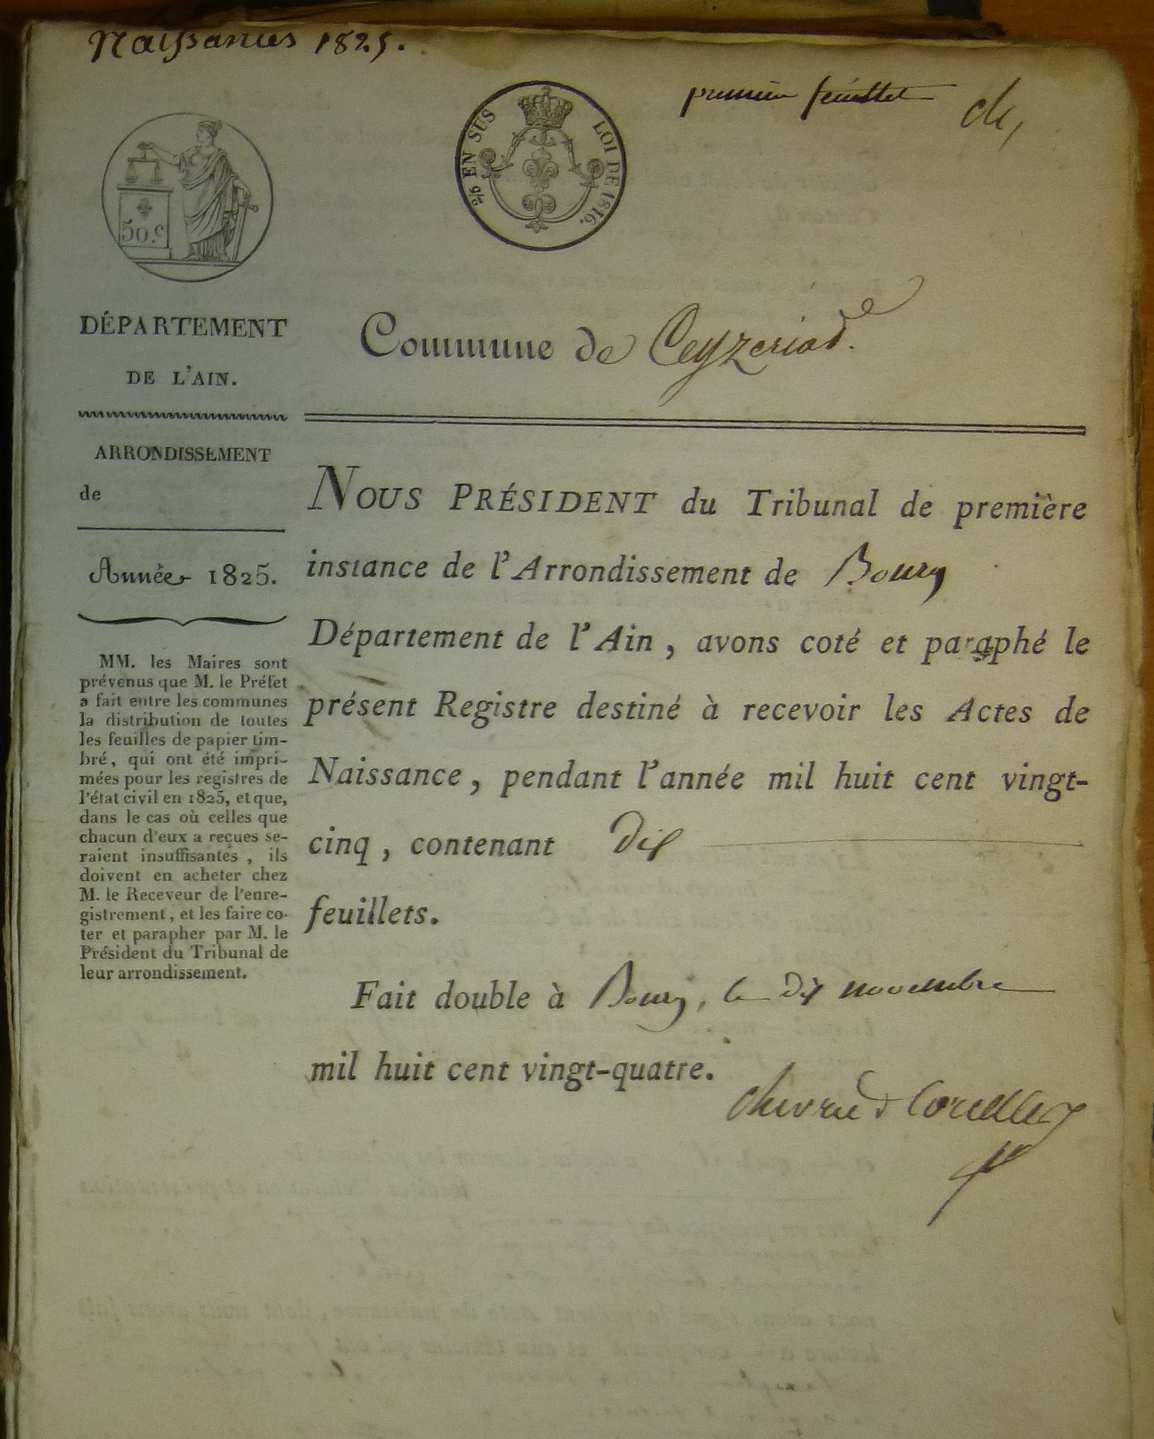 Naissances 1825.
premier feuillet
2/5 EN SUS LOI DE 1816.
50 c
DÉPARTEMENT
DE L'AIN.
ARRONDISSEMENT
de
Année 1825.
MM. les Maires sont
prévenus que M. le Préfet
a fait entre les communes
la distribution de toutes
les feuilles de papier tim-
bré, qui ont été impri-
mées pour les registres de
l'état civil en 1825, et que,
dans le cas où celles que
chacun d'eux a reçues se-
raient insuffisantes, ils
doivent en acheter chez
M. le Receveur de l'enre-
gistrement, et les faire co-
ter et parapher par M. le
Président du Tribunal de
leur arrondissement.
Commune de Ceyzeriad.
NOUS PRÉSIDENT du Tribunal de première
instance de l'Arrondissement de Bourg
Département de l'Ain, avons coté et paraphé le
présent Registre destiné à recevoir les Actes de
Naissance, pendant l'année mil huit cent vingt-
cinq, contenant dix
feuillets.
Fait double à Bourg, le dix novembre
mil huit cent vingt-quatre.